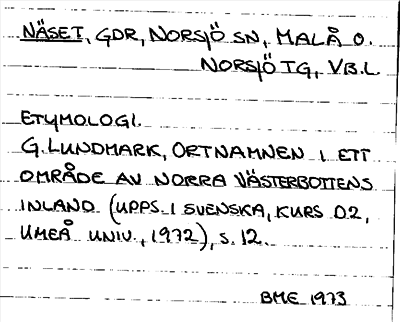 NÄSET, GDR, NORSJÖ SN, MALÅ O.
NORSJÖ TG, VB.L.
ETYMOLOGI.
G. LUNDMARK, ORTNAMNEN I ETT
OMRÅDE AV NORRA VÄSTERBOTTENS
INLAND (UPPS. I SVENSKA, KURS D2,
UMEÅ UNIV., 1972), S. 12.
BME 1973